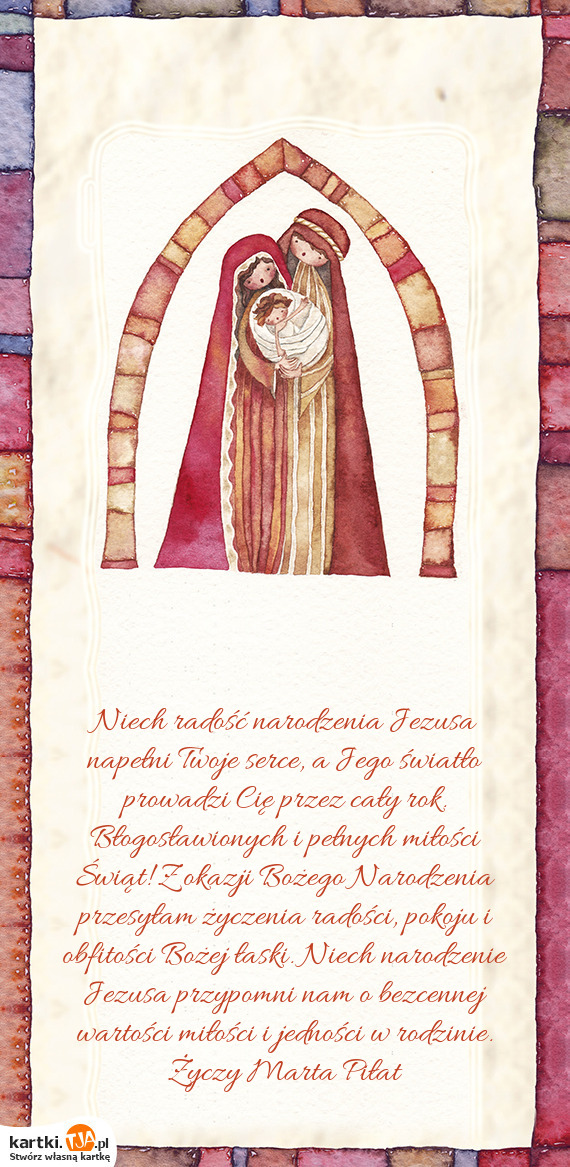 Niech radość narodzenia Jezusa
napełni Twoje serce, a Jego światło
prowadzi Cię przez cały rok.
Błogosławionych i pełnych miłości
Świąt! Z okazji Bożego Narodzenia
przesyłam życzenia radości, pokoju i
obfitości Bożej łaski. Niech narodzenie
Jezusa przypomni nam o bezcennej
wartości miłości i jedności w rodzinie.
Życzy Marta Piłat
kartki.TJA.pl
Stwórz własną kartkę